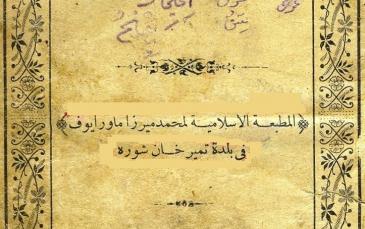 المطبعة الاسلامية لمحمد ميرزا ماورايوف
فى بلدة تمير خان شوره